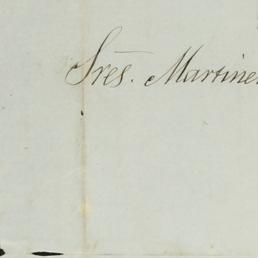 Sres. Martine